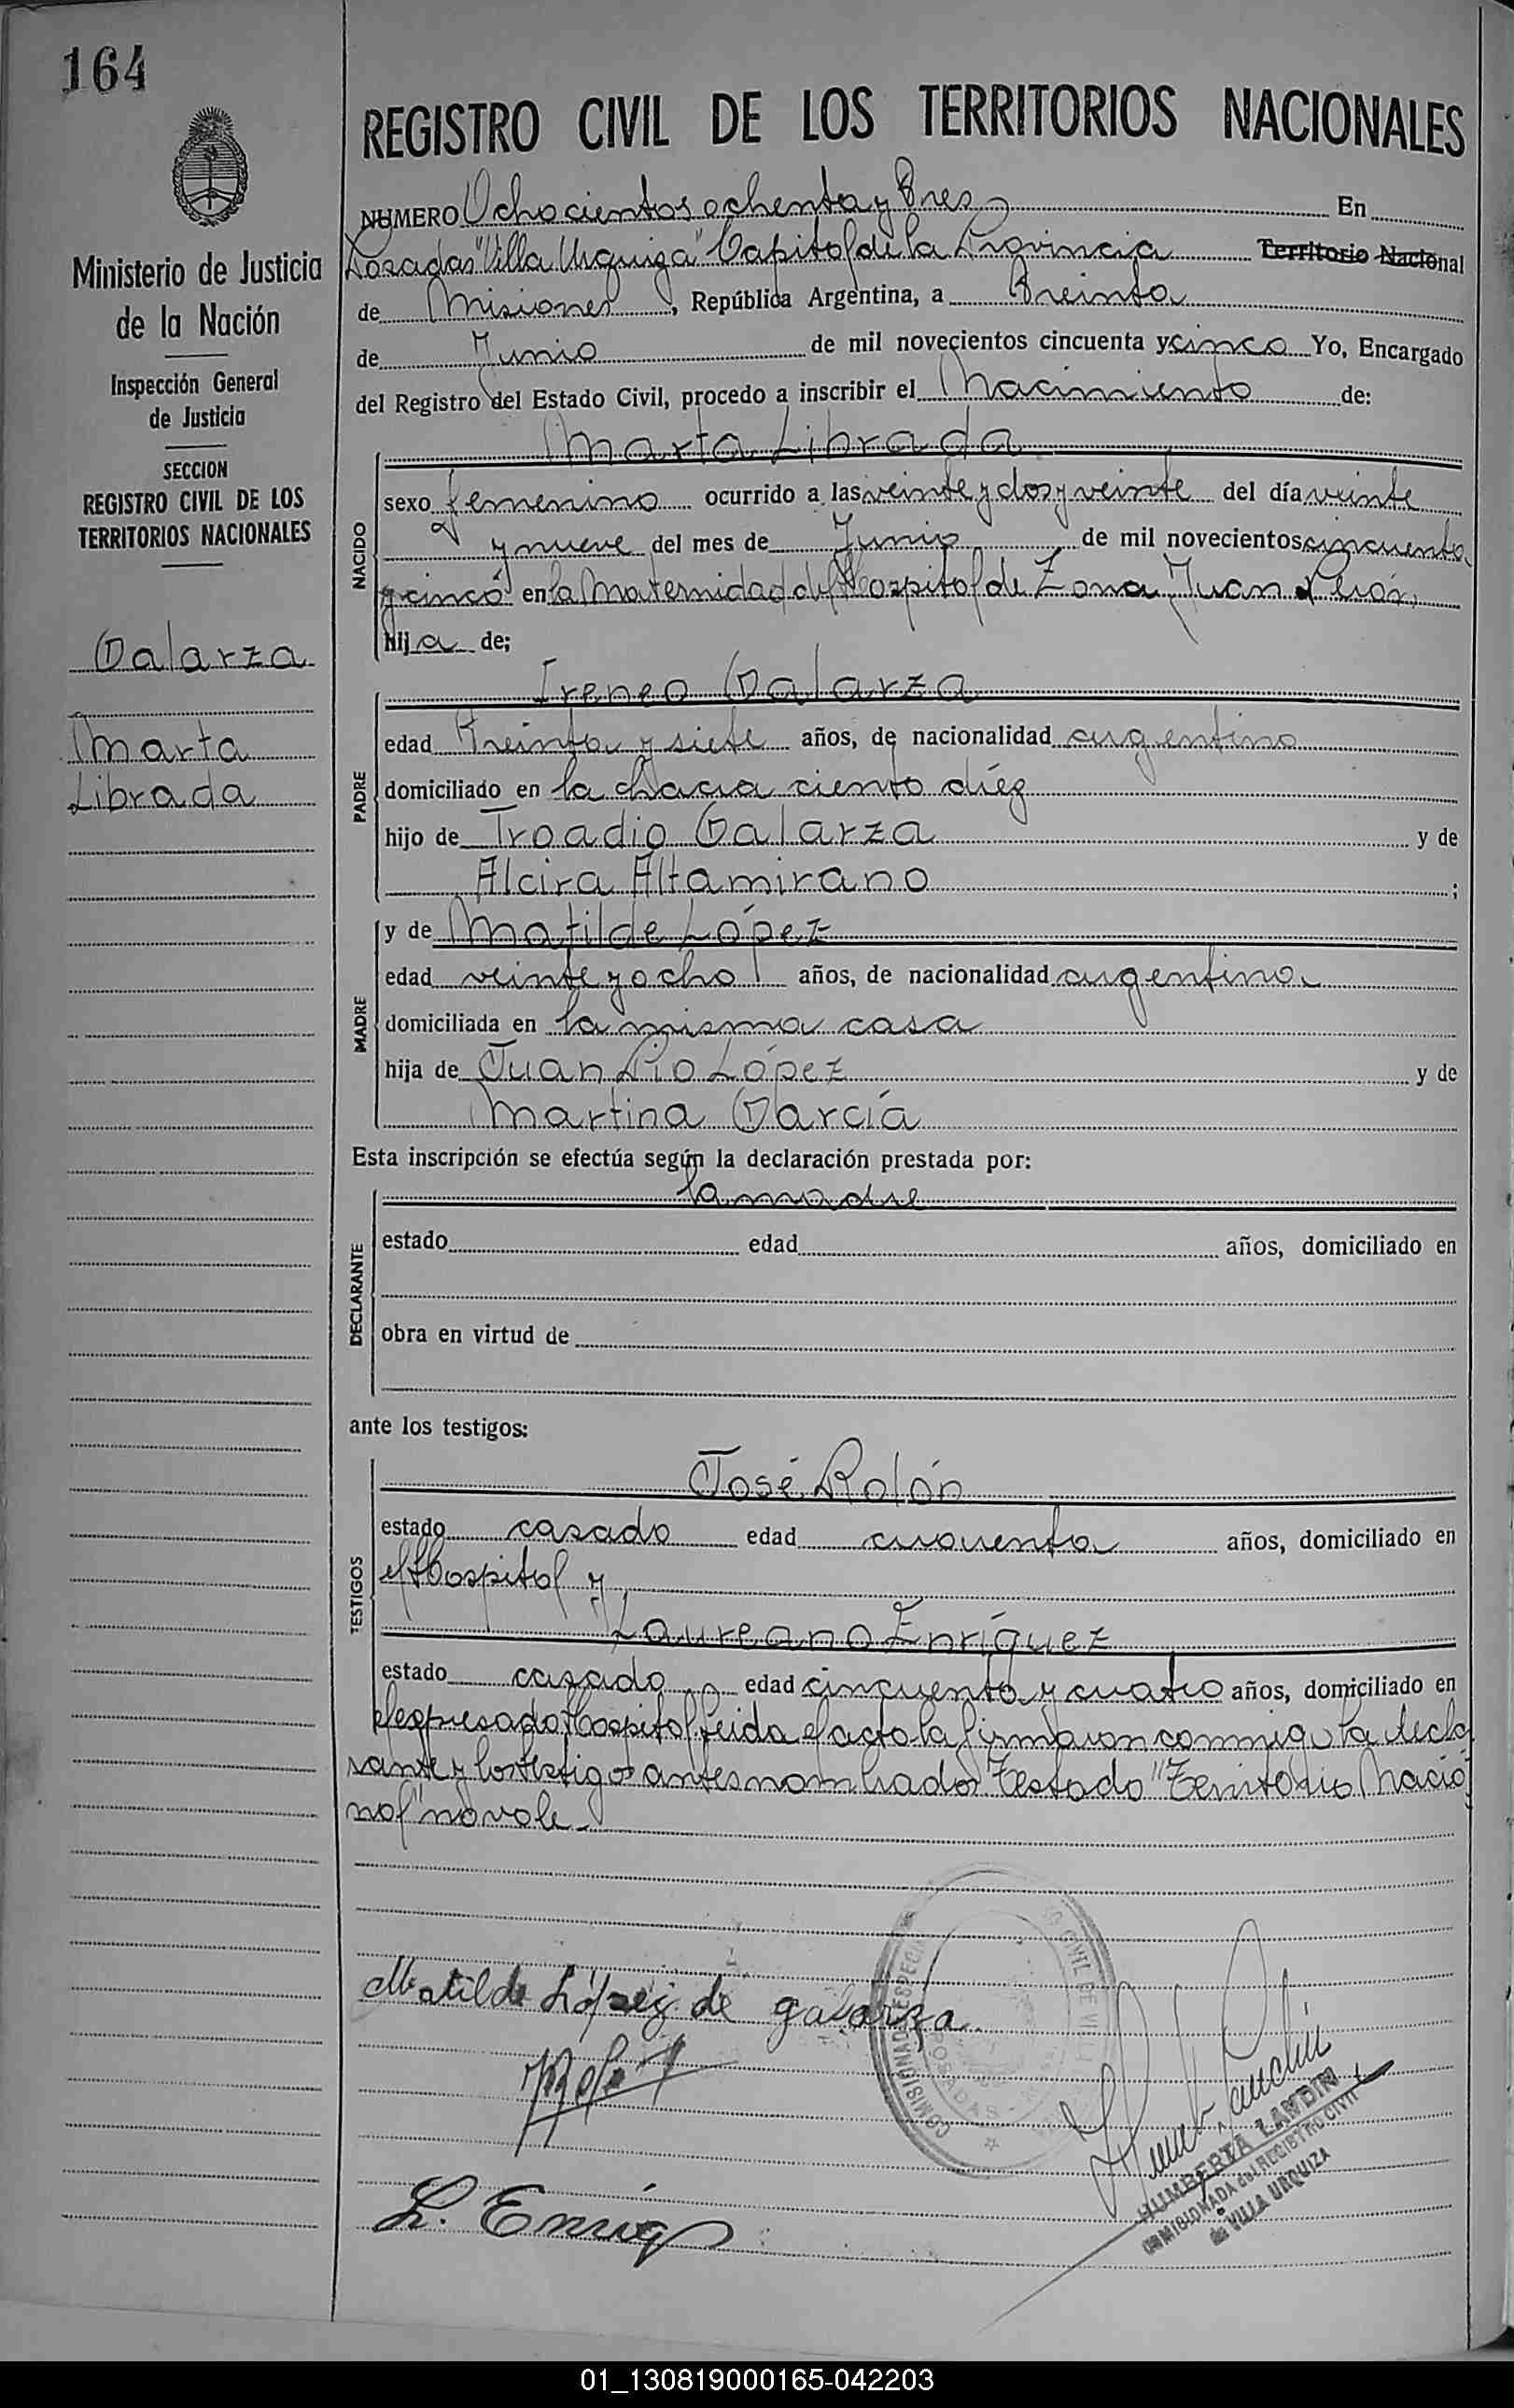 164
REGISTRO CIVIL DE LOS TERRITORIOS NACIONALES
Ministerio de Justicia
de la Nación
Inspección General
de Justicia
SECCION
REGISTRO CIVIL DE LOS
TERRITORIOS NACIONALES
Galarza
Marta
Librada
NUMERO Ochocientos ochenta y Tres En
Posadas "Villa Urquiza" Capital de la Provincia Territorio Nacional
de Misiones, República Argentina, a Treinta
de Junio de mil novecientos cincuenta y cinco Yo, Encargado
del Registro del Estado Civil, procedo a inscribir el Nacimiento de:
NACIDO
Marta Librada
sexo femenino ocurrido a las veinte y dos y veinte del día veinte
y nueve del mes de Junio de mil novecientos cincuenta
y cinco en la Maternidad del Hospital de Zona Juan Perón,
hija de;
PADRE
Ireneo Galarza
edad treinta y siete años, de nacionalidad argentino
domiciliado en la chacra ciento diéz
hijo de Troadio Galarza y de
Alcira Altamirano ;
MADRE
y de Matilde López
edad veinte y ocho años, de nacionalidad argentina
domiciliada en la misma casa
hija de Juan Pio López y de
Martina García
Esta inscripción se efectúa según la declaración prestada por:
DECLARANTE
la madre
estado edad años, domiciliado en
obra en virtud de
ante los testigos:
TESTIGOS
José Rolón
estado casado edad cuarenta años, domiciliado en
el Hospital y
Laureano Enríquez
estado casado edad cincuenta y cuatro años, domiciliado en
el expresado Hospital leida el acta la firmaron conmigo la decla
rante y los testigos antes nombrados Testado "Territorio Nacio
nal" no vale.
Matilde López de galarza
L. Enriq
COMISIONADA ESPECIAL CIVIL DE VILLA
POSADAS
HUMBERTA LANDIN
COMISIONADA del REGISTRO CIVIL
de VILLA URQUIZA
01_130819000165-042203